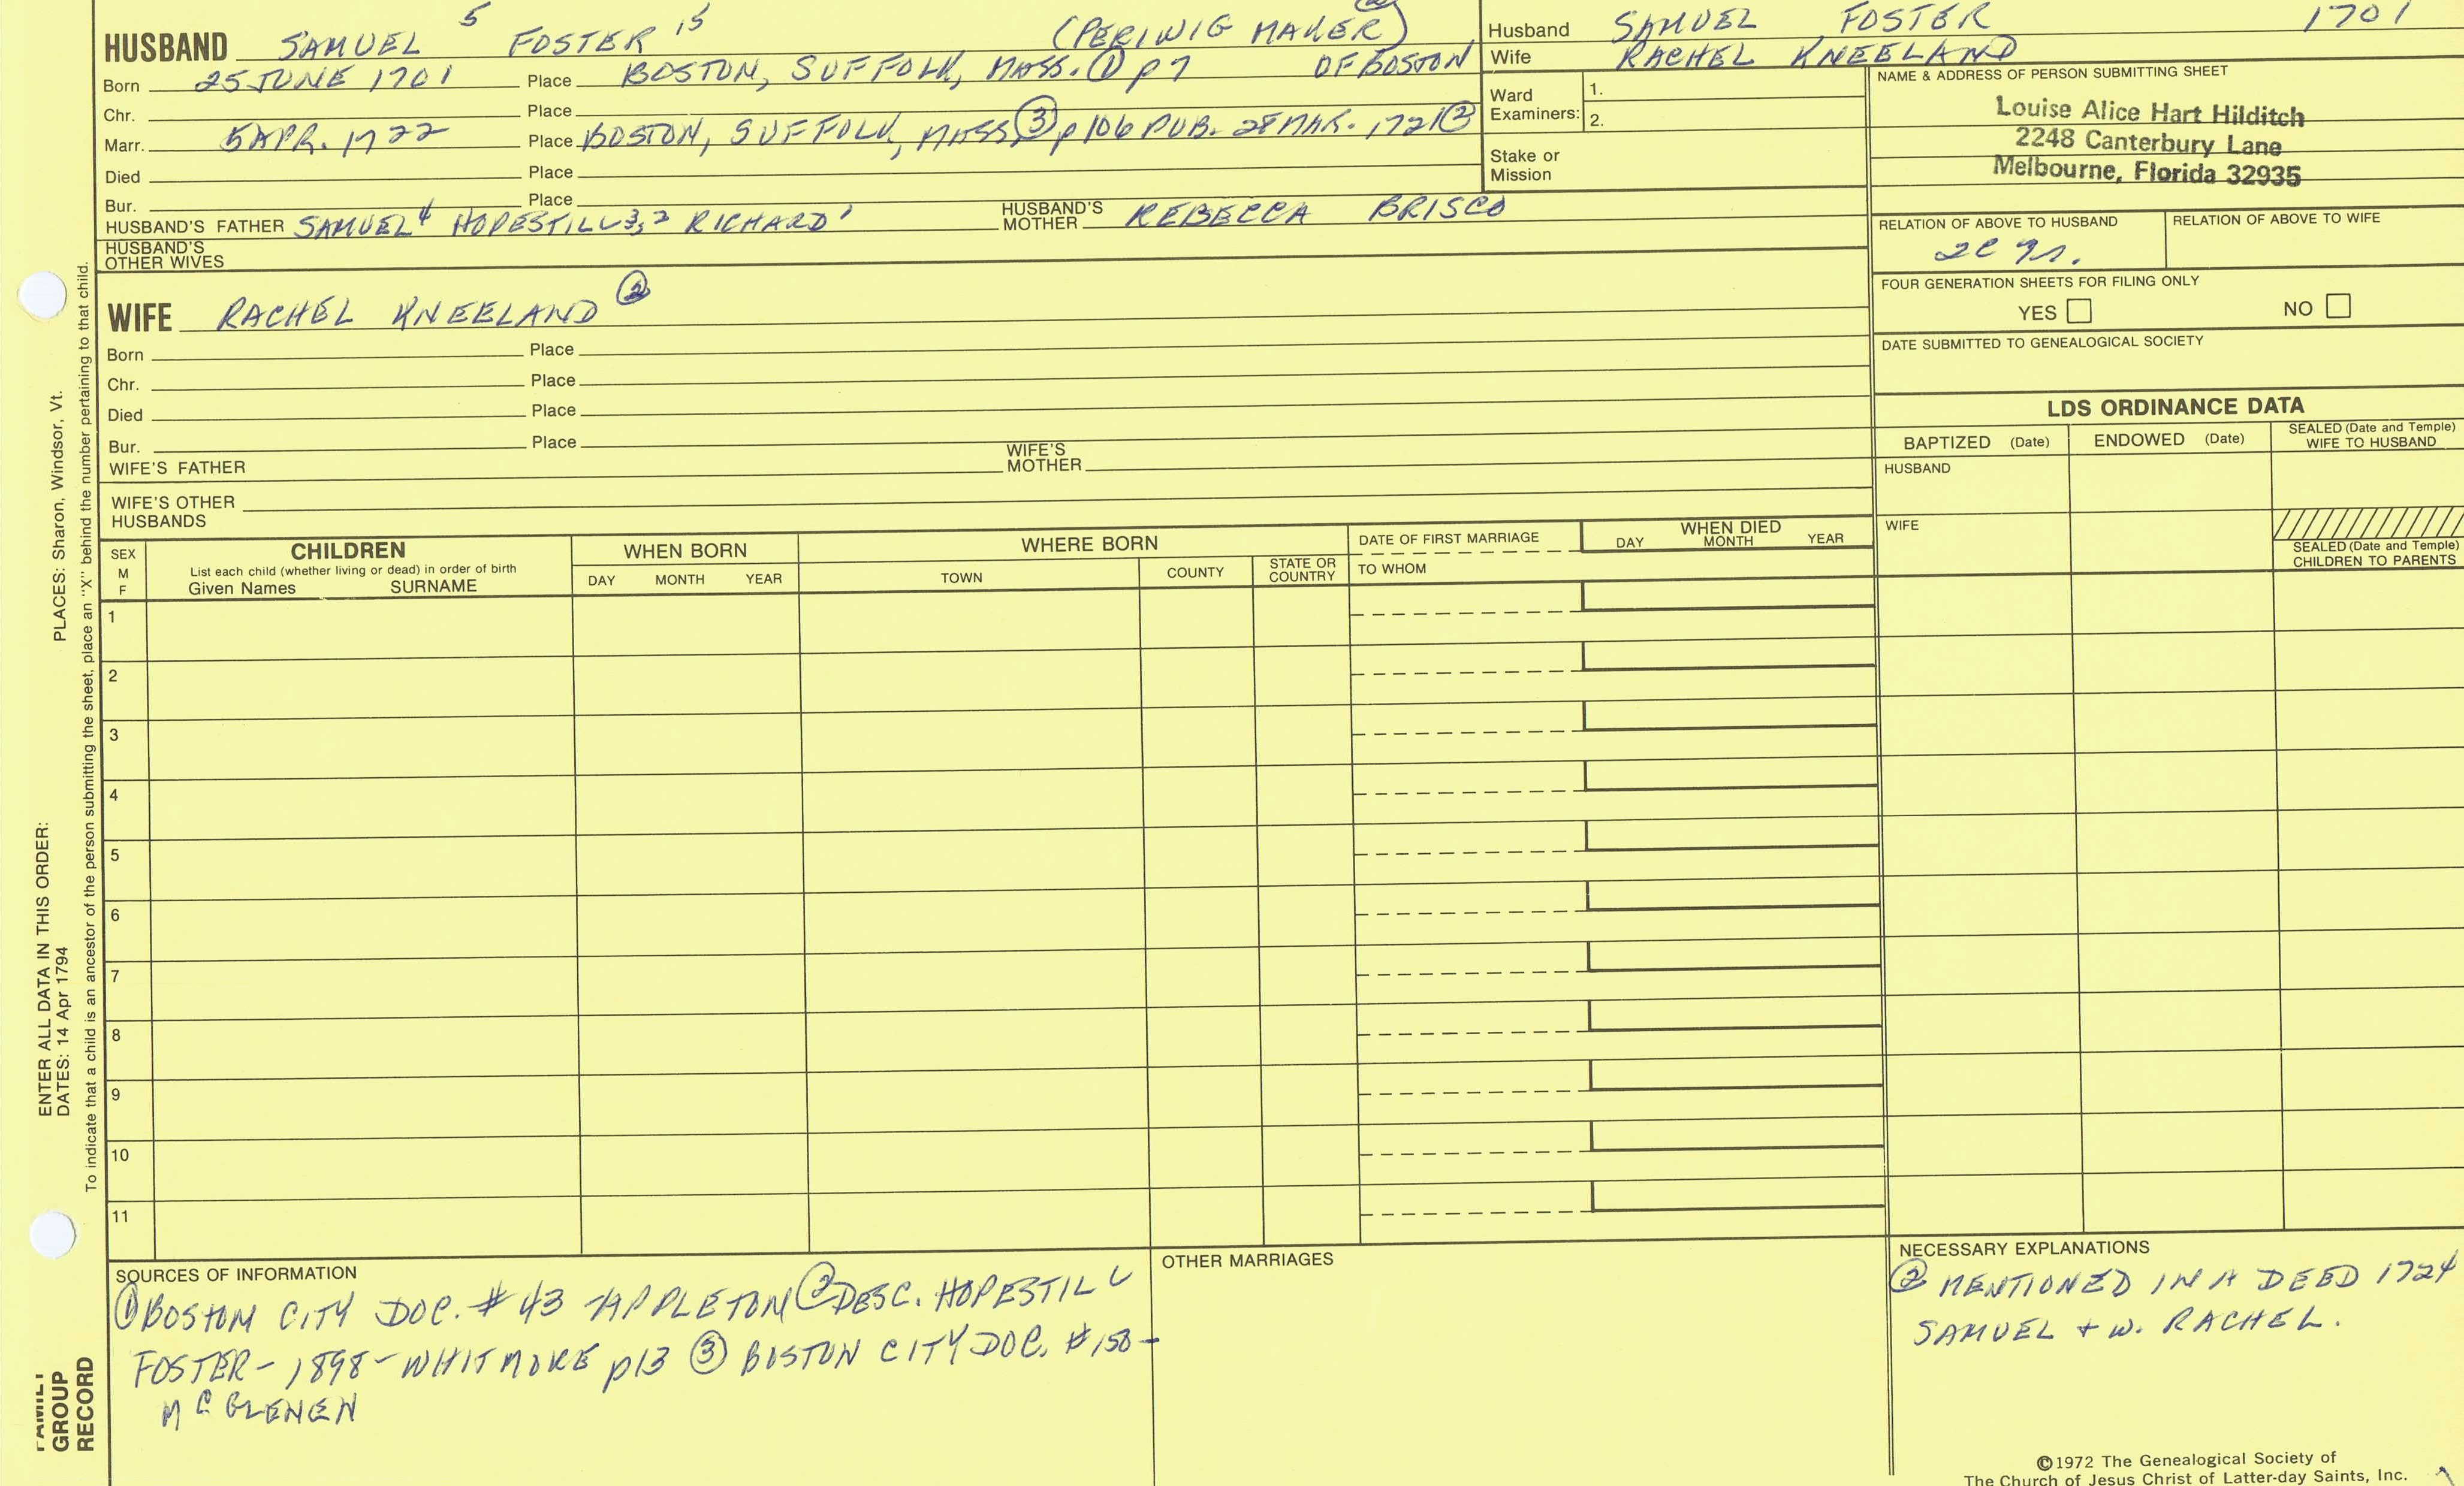 HUSBAND SAMUEL 5 FOSTER 15 (PERIWIG MAKER)
Born 25 JUNE 1701 Place BOSTON, SUFFOLK, MASS. ① p 7 OF BOSTON
Chr. Place
Marr. 5 APR. 1722 Place BOSTON, SUFFOLK, MASS. ③ p 106 PUB. 28 MAR. 1721 ②
Died Place
Bur. Place
HUSBAND'S FATHER SAMUEL4 HOPESTILL3,2 RICHARD1 HUSBAND'S MOTHER REBECCA BRISCO
HUSBAND'S OTHER WIVES
WIFE RACHEL KNEELAND ②
Born Place
Chr. Place
Died Place
Bur. Place
WIFE'S FATHER WIFE'S MOTHER
WIFE'S OTHER HUSBANDS
Husband SAMUEL FOSTER 1701
Wife RACHEL KNEELAND
Ward Examiners: 1.
2.
Stake or Mission
NAME & ADDRESS OF PERSON SUBMITTING SHEET
Louise Alice Hart Hilditch
2248 Canterbury Lane
Melbourne, Florida 32935
RELATION OF ABOVE TO HUSBAND RELATION OF ABOVE TO WIFE
FOUR GENERATION SHEETS FOR FILING ONLY
YES NO
DATE SUBMITTED TO GENEALOGICAL SOCIETY
LDS ORDINANCE DATA
BAPTIZED (Date) ENDOWED (Date) SEALED (Date and Temple) WIFE TO HUSBAND
HUSBAND
WIFE
SEALED (Date and Temple)
CHILDREN TO PARENTS
SEX M F
CHILDREN
List each child (whether living or dead) in order of birth
Given Names SURNAME
WHEN BORN
DAY MONTH YEAR
WHERE BORN
TOWN COUNTY STATE OR COUNTRY
DATE OF FIRST MARRIAGE
TO WHOM
WHEN DIED
DAY MONTH YEAR
1
2
3
4
5
6
7
8
9
10
11
SOURCES OF INFORMATION
① BOSTON CITY DOC. # 43 - APPLETON ② DESC. HOPESTILL
FOSTER - 1898 - WHITMORE p13 ③ BOSTON CITY DOC. #150 -
McGLENEN
OTHER MARRIAGES
NECESSARY EXPLANATIONS
② MENTIONED IN A DEED 1724
SAMUEL + W. RACHEL.
©1972 The Genealogical Society of
The Church of Jesus Christ of Latter-day Saints, Inc.
ENTER ALL DATA IN THIS ORDER:
DATES: 14 Apr 1794 PLACES: Sharon, Windsor, Vt.
To indicate that a child is an ancestor of the person submitting the sheet, place an "X" behind the number pertaining to that child.
FAMILY
GROUP
RECORD